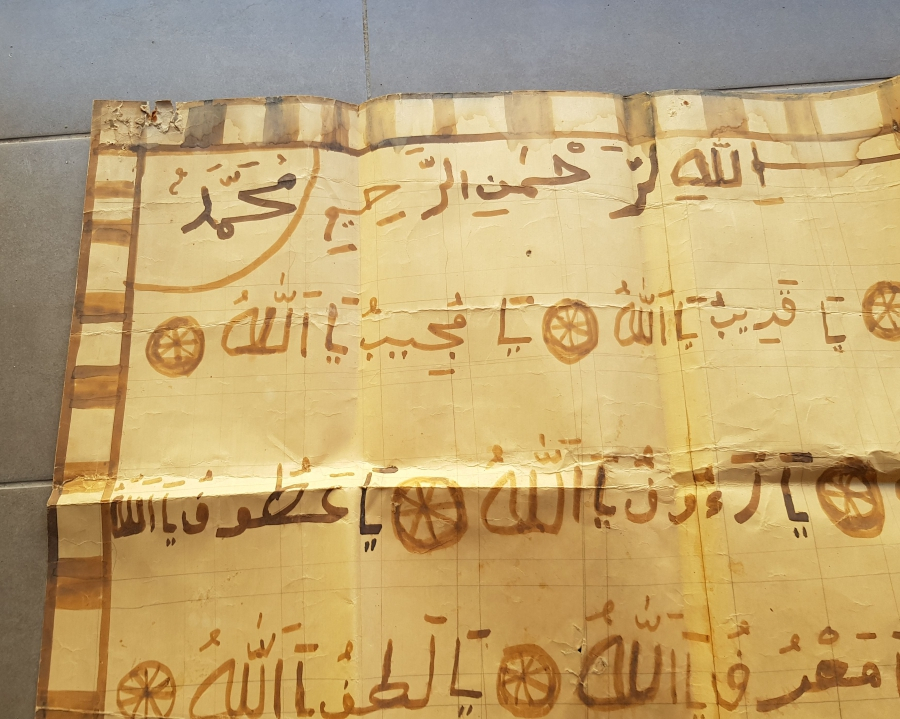 اللَّهِ لرَّحْمَٰنِ الرَّحِيمِ مُحَمَّدٌ
يَا قَرِيبُ يَا اَللَّهُ يَا مُجِيبُ يَا اَللَّهُ
يَا رَءُوفُ يَا اَللَّهُ يَا عَطُوفُ يَا اَللَّهُ
مَعْرُوفُ يَا اَللَّهُ يَا يَا اَللَّهُ